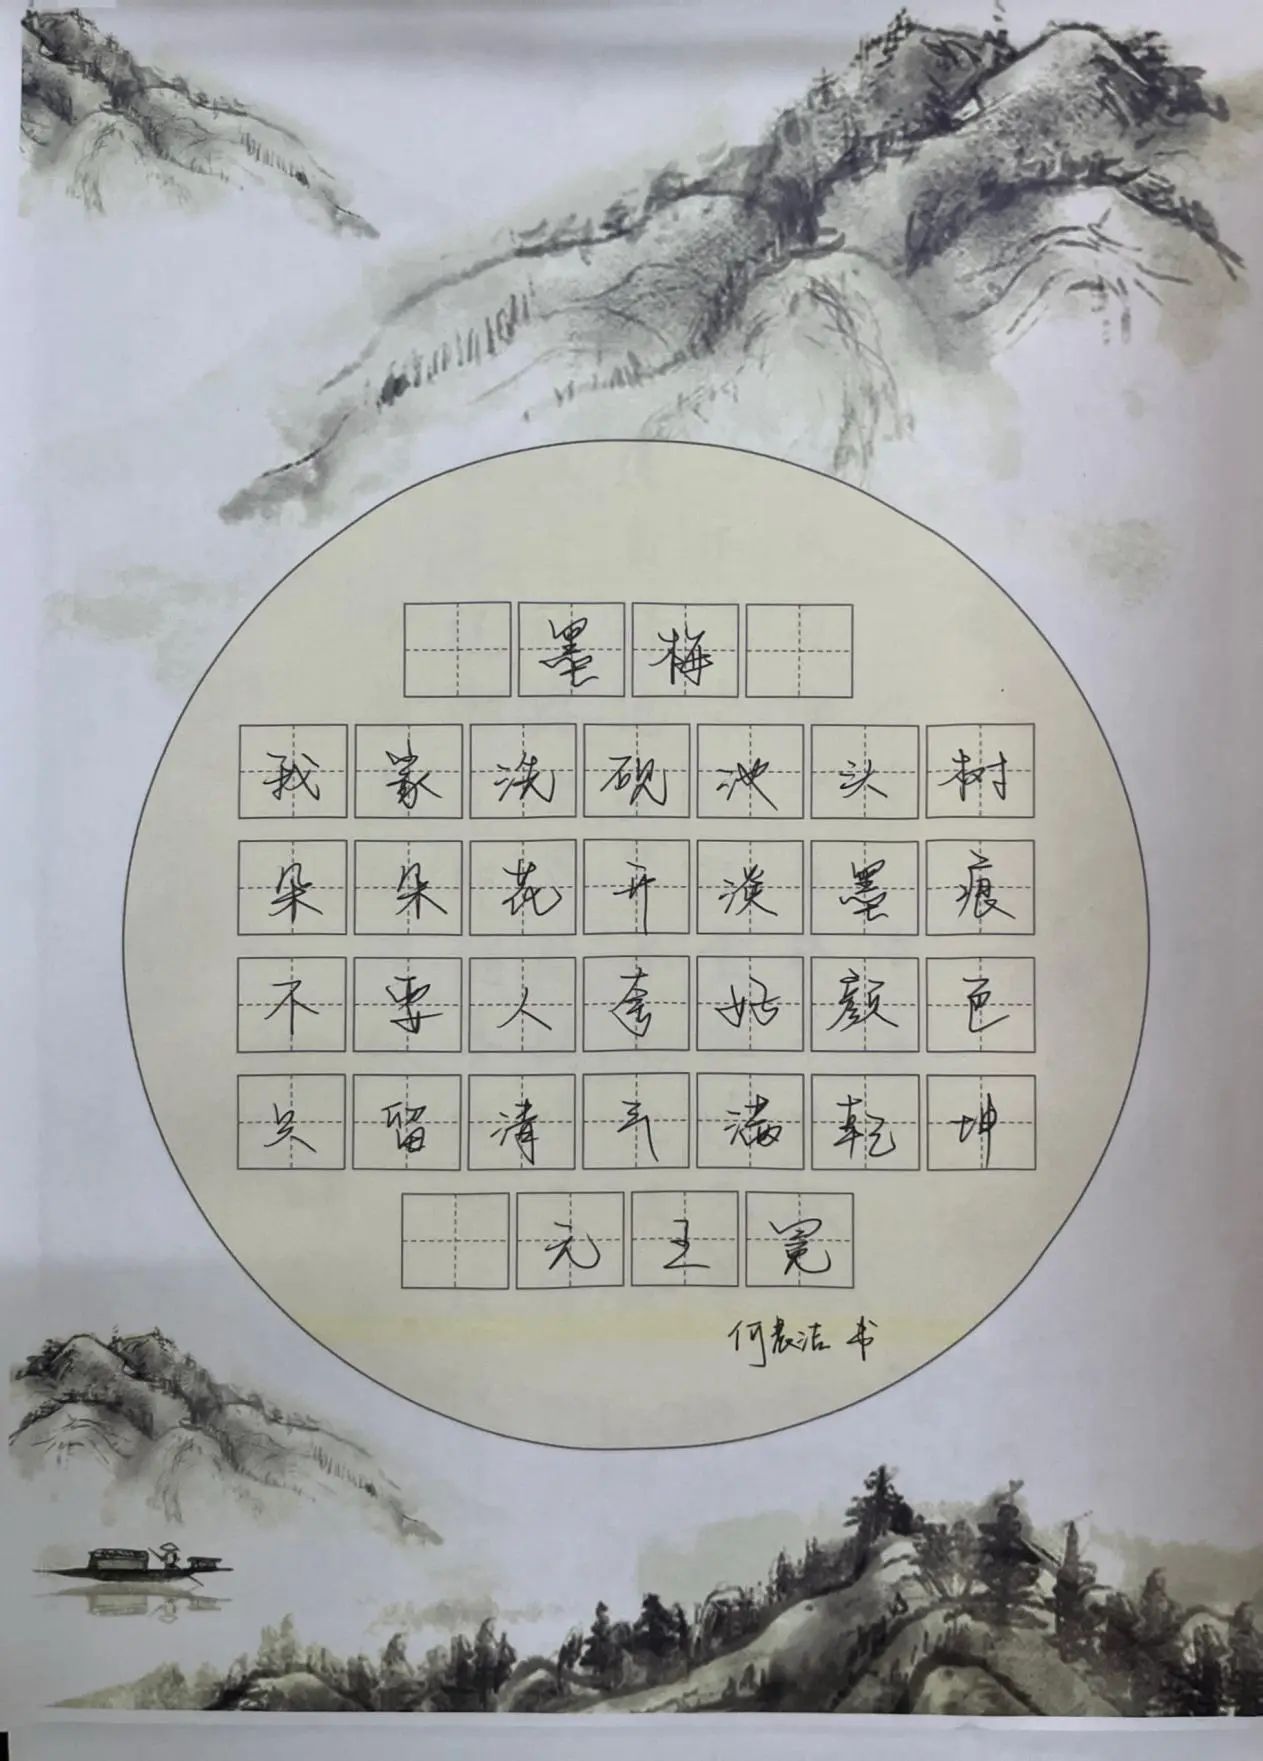 墨梅
我家洗砚池头树
朵朵花开淡墨痕
不要人夸好颜色
只留清气满乾坤
元王冕
何晨洁 书